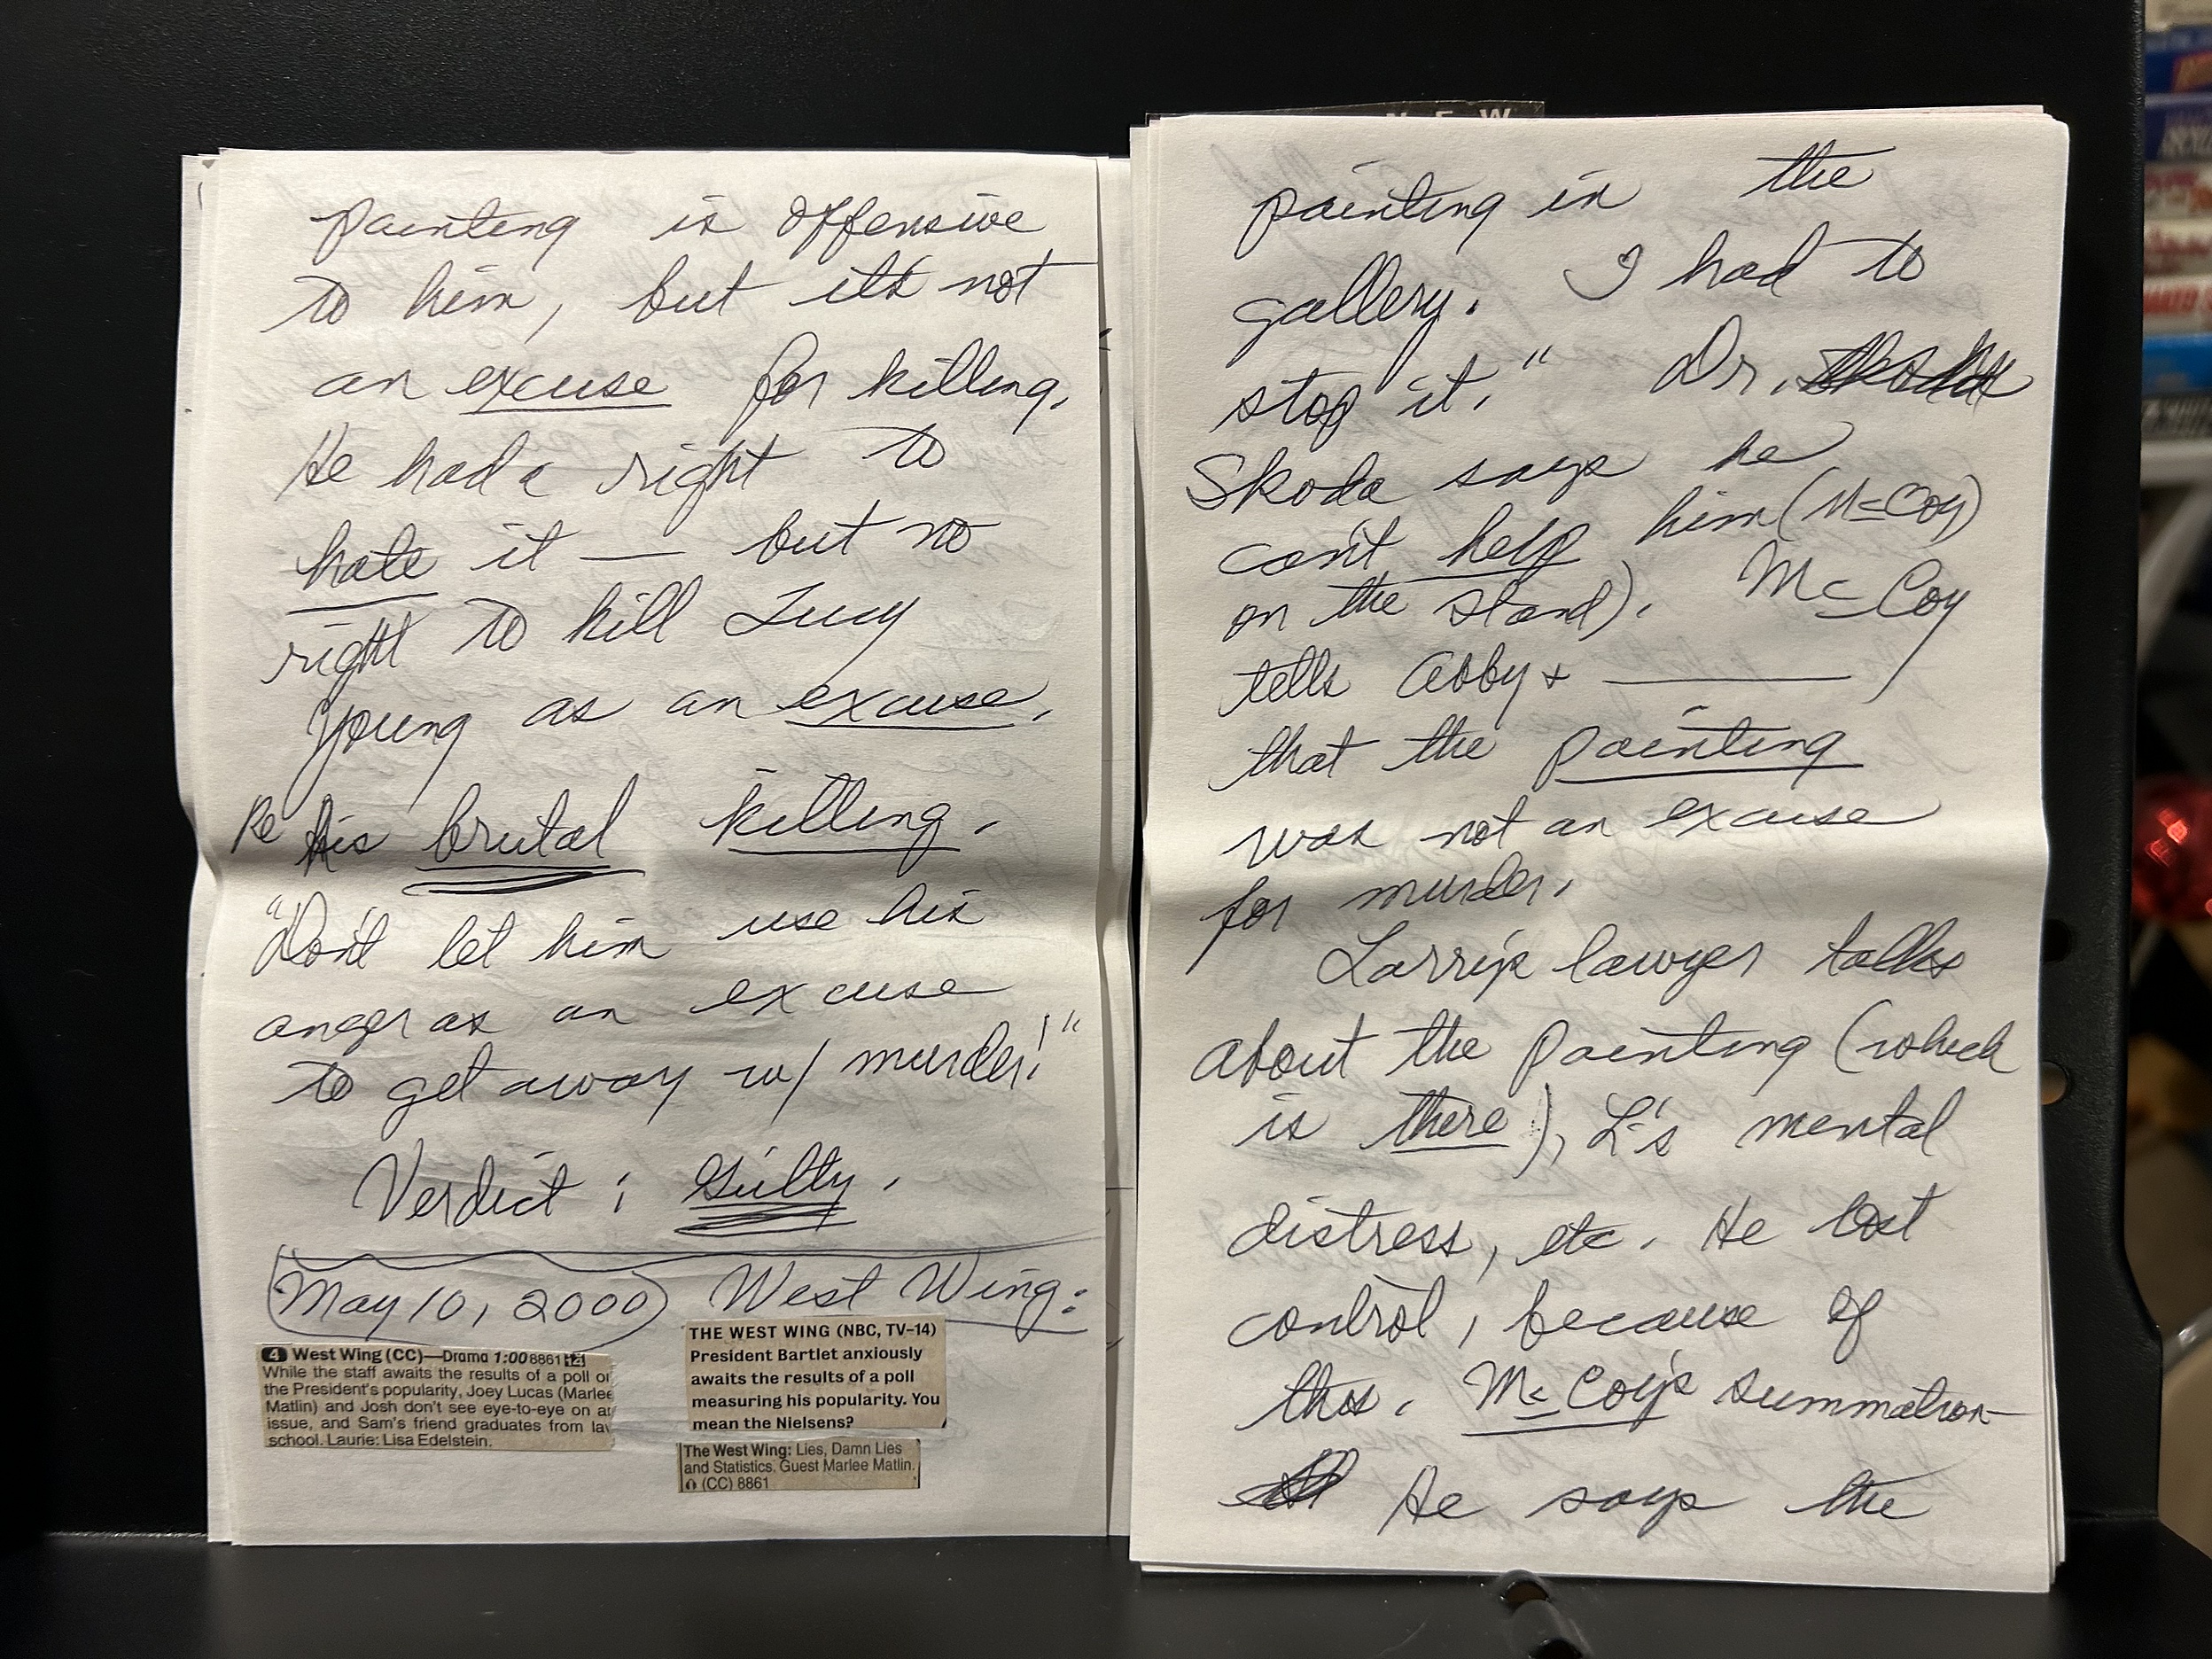 painting is offensive
to him, but it's not
an excuse for killing.
He had a right to
hate it — but no
right to kill Lucy
Young as an excuse.
Re his brutal killing.
"Don't let him use his
anger as an excuse
to get away w/ murder!"
Verdict: Guilty.
May 10, 2000 West Wing:
4 West Wing (CC)—Drama 1:00 8861 14
While the staff awaits the results of a poll on
the President's popularity, Joey Lucas (Marlee
Matlin) and Josh don't see eye-to-eye on an
issue, and Sam's friend graduates from law
school. Laurie: Lisa Edelstein.
THE WEST WING (NBC, TV-14)
President Bartlet anxiously
awaits the results of a poll
measuring his popularity. You
mean the Nielsens?
The West Wing: Lies, Damn Lies
and Statistics. Guest Marlee Matlin.
(CC) 8861
painting in the
gallery. I had to
stop it." Dr.
Skoda says he
can't help him (McCoy)
on the stand). McCoy
tells Abby + ______
that the painting
was not an excuse
for murder.
Larry's lawyer talks
about the painting (which
is there), L's mental
distress, etc. He lost
control, because of
this. McCoy's summation—
He says the